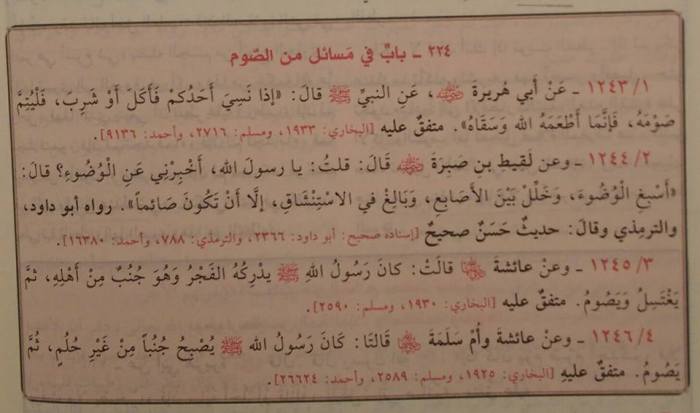 ٢٢٤ ـ بابٌ في مَسائل من الصّوم
١/ ١٢٤٣ ـ عَنْ أبي هُريرة ﵁، عَنِ النبيِّ ﷺ قالَ: «إذا نَسِيَ أَحَدُكمْ فَأكَلَ أوْ شَرِبَ، فَلْيُتِمَّ
صَوْمَهُ، فَإنَّما أطْعَمَهُ الله وَسَقَاهُ». متفقٌ عليه [البخاري: ١٩٣٣، ومسلم: ٢٧١٦، وأحمد: ٩١٣٦].
٢/ ١٢٤٤ ـ وعن لَقِيطِ بنِ صَبِرَةَ ﵁ قَالَ: قلتُ: يا رسولَ الله، أَخْبِرْنِي عَنِ الْوُضُوءِ؟ قالَ:
«أَسْبِغِ الْوُضُوءَ، وَخَلِّلْ بَيْنَ الأَصَابِعِ، وَبَالِغْ في الاسْتِنْشَاقِ، إلَّا أنْ تَكُونَ صَائِماً». رواه أبو داود،
والترمِذي وقالَ: حديثٌ حَسَنٌ صحيحٌ [إسناده صحيح: أبو داود: ٢٣٦٦، والترمذي: ٧٨٨، وأحمد: ١٦٣٨٠].
٣/ ١٢٤٥ ـ وعنْ عائشةَ ﵂ قالَتْ: كانَ رَسُولُ اللهِ ﷺ يدْرِكُهُ الفَجْرُ وَهوَ جُنُبٌ مِنْ أهْلِهِ، ثمَّ
يَغْتَسِلُ وَيَصُومُ. متفقٌ عليه [البخاري: ١٩٣٠، ومسلم: ٢٥٩٠].
٤/ ١٢٤٦ ـ وعنْ عائشةَ وأُمِّ سَلَمَةَ ﵄ قَالَتَا: كَانَ رَسُولُ الله ﷺ يُصْبِحُ جُنُباً مِنْ غَيْرِ حُلُمٍ، ثُمَّ
يَصُومُ. متفقٌ عليهِ [البخاري: ١٩٢٥، ومسلم: ٢٥٨٩، وأحمد: ٢٦٦٢٤].